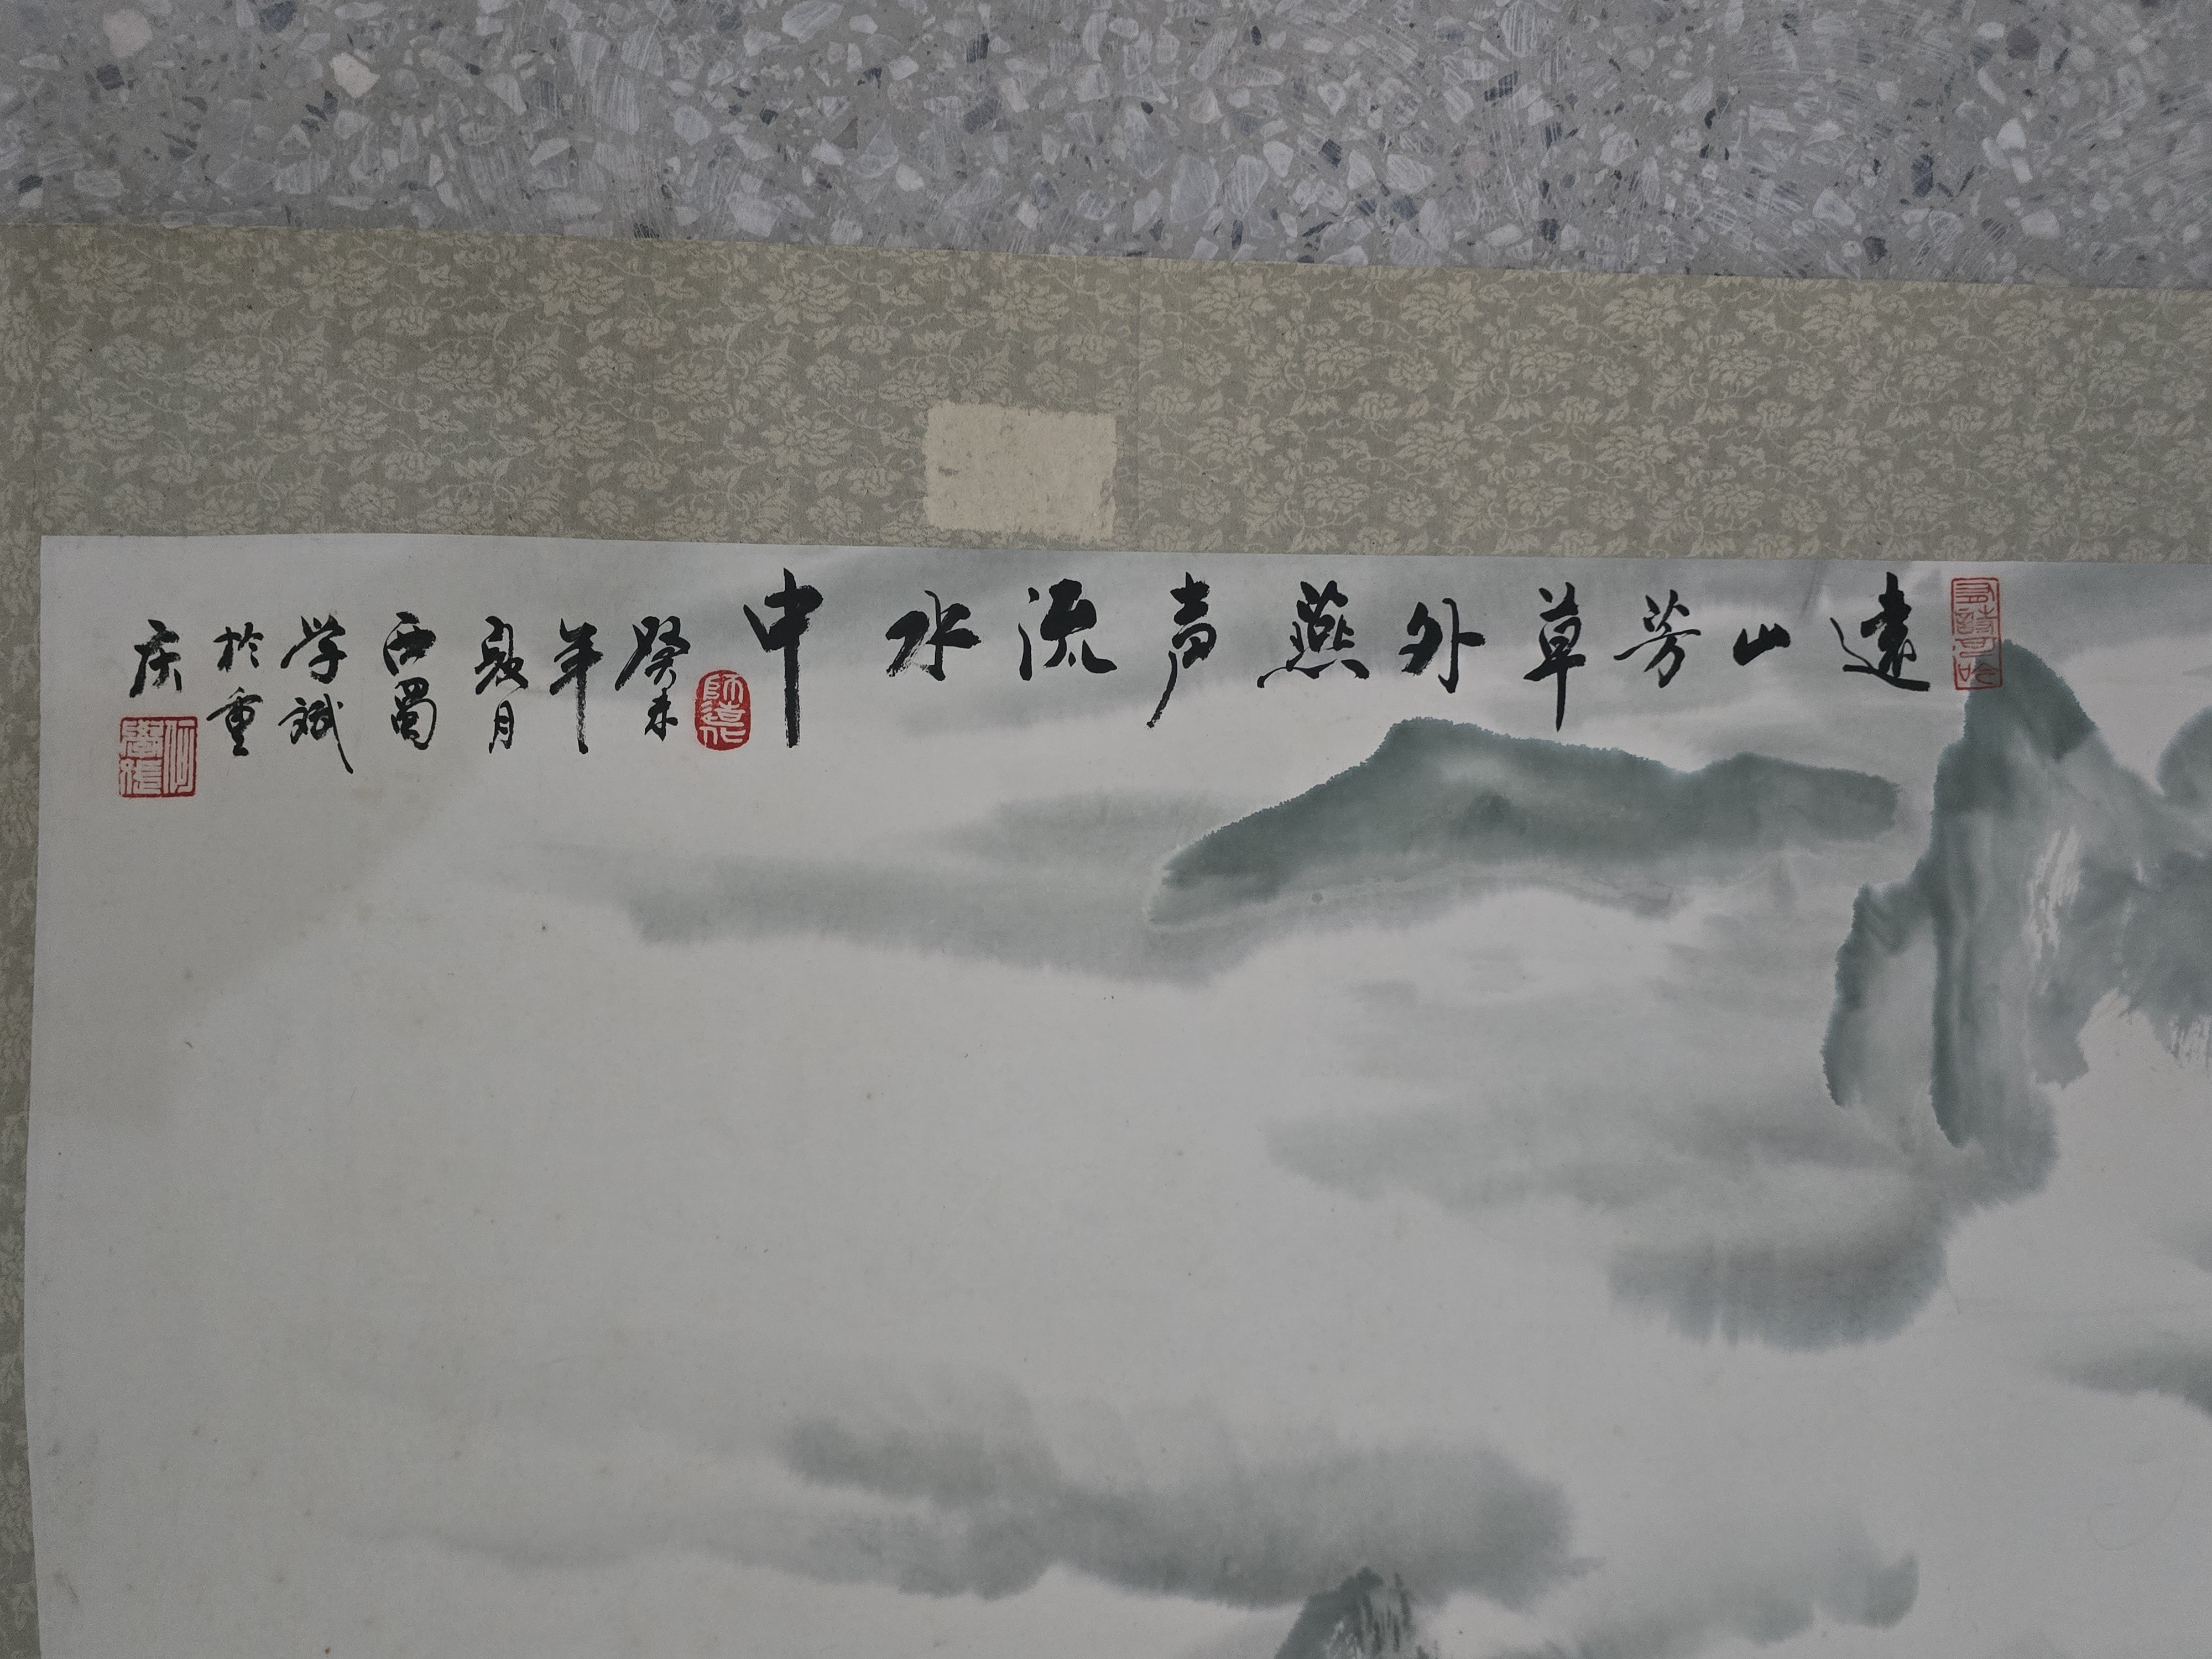 遠山芳草外燕声流水中
癸未
年
夏月
西蜀
学斌
於重
庆
師造化